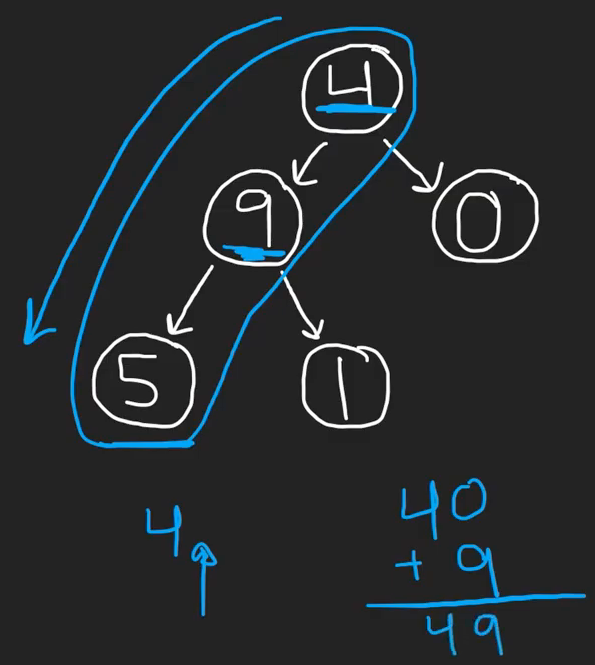 4
9 0
5 1
4
40
+ 9
49